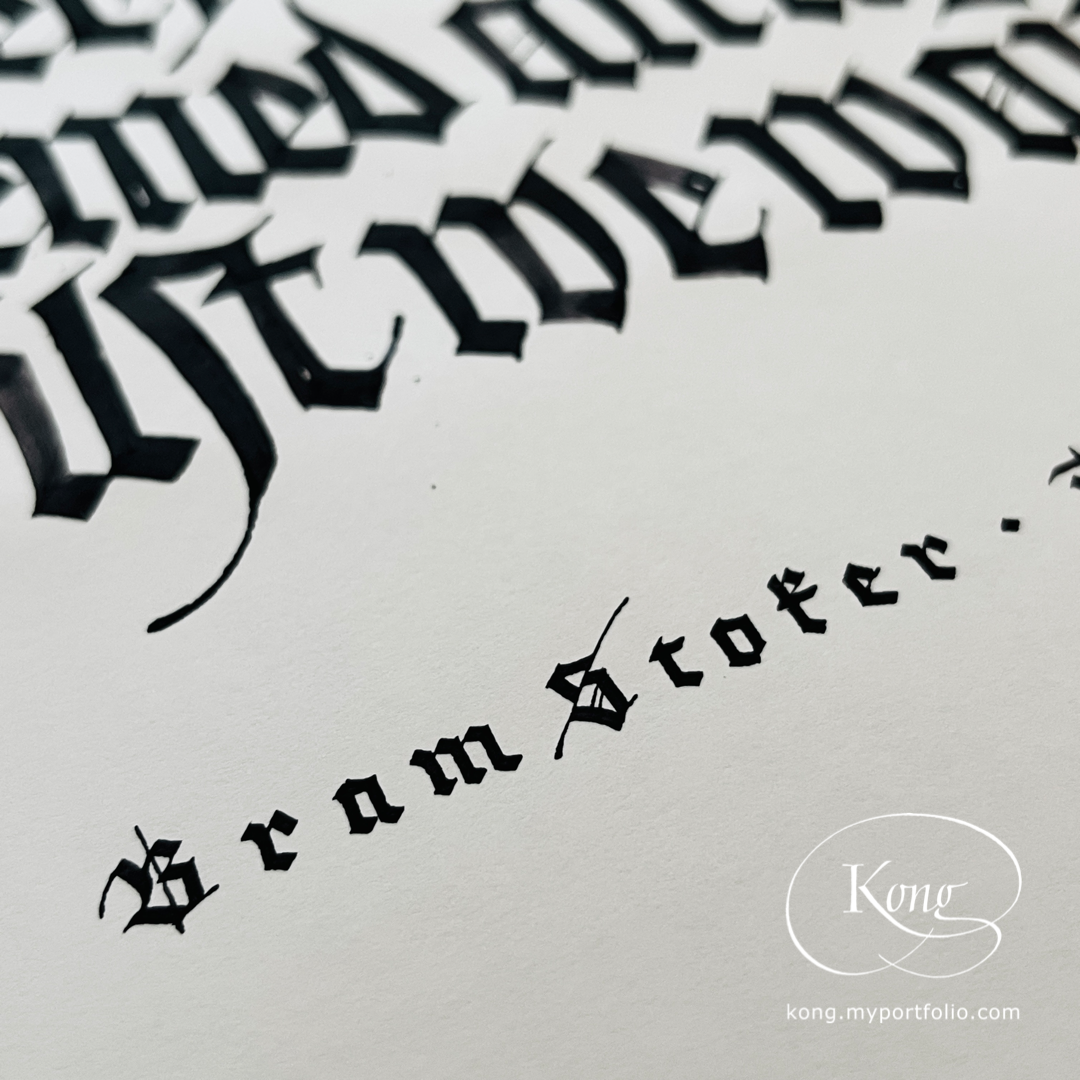 emed
uſt we wa
Bram Stoker.
Kong
kong.myportfolio.com